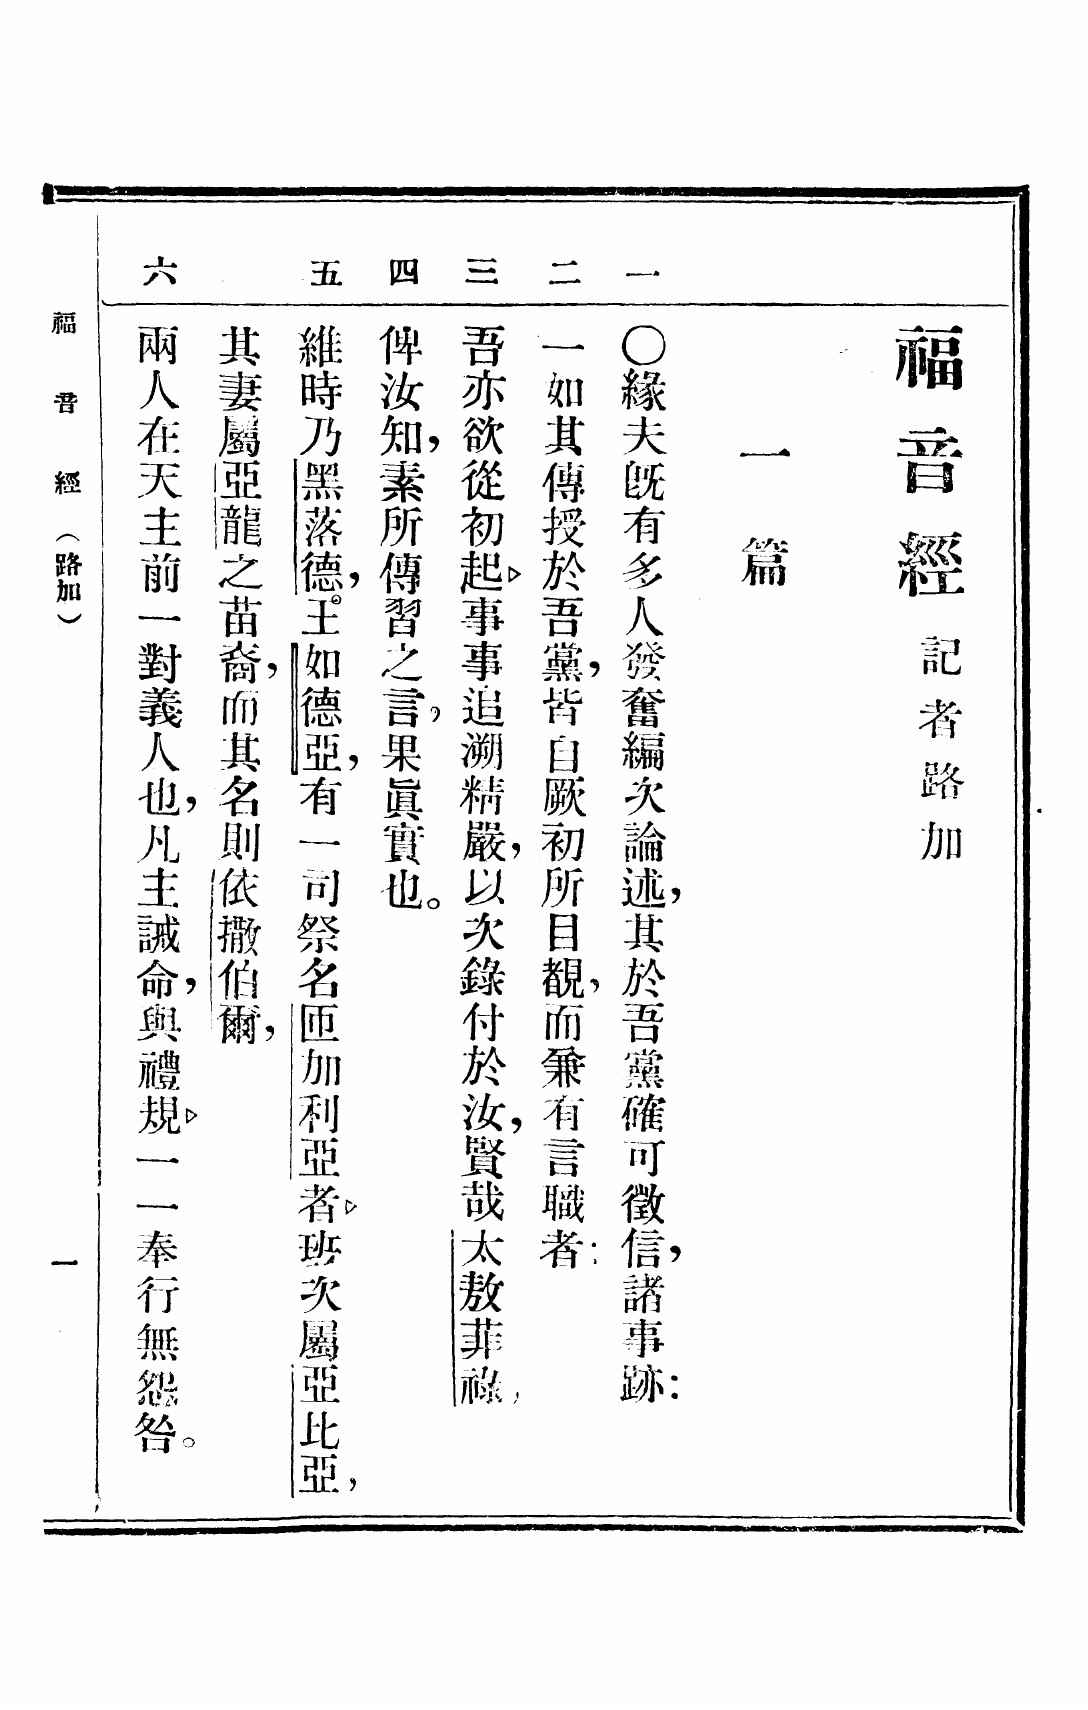 福音經 記者路加
一篇
一
〇緣夫旣有多人發奮編次論述，其於吾黨確可徵信，諸事跡：
二
一如其傳授於吾黨，皆自厥初所目覩，而兼有言職者：
三
吾亦欲從初起▷事事追溯精嚴，以次錄付於汝，賢哉太敖菲祿，
四
俾汝知，素所傳習之言，果眞實也。
五
維時乃黑落德，王如德亞，有一司祭名匝加利亞者▷班次屬亞比亞，
其妻屬亞龍之苗裔，而其名則依撒伯爾，
六
兩人在天主前一對義人也，凡主誡命，與禮規▷一一奉行無怨咎。
福音經（路加）
一